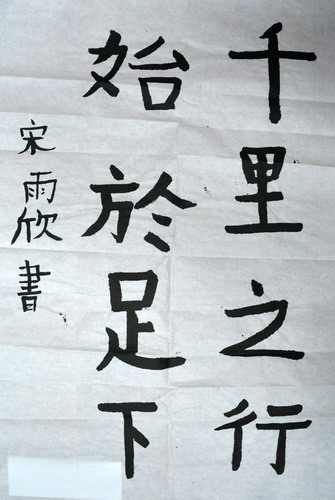 千里之行
始於足下
宋雨欣書